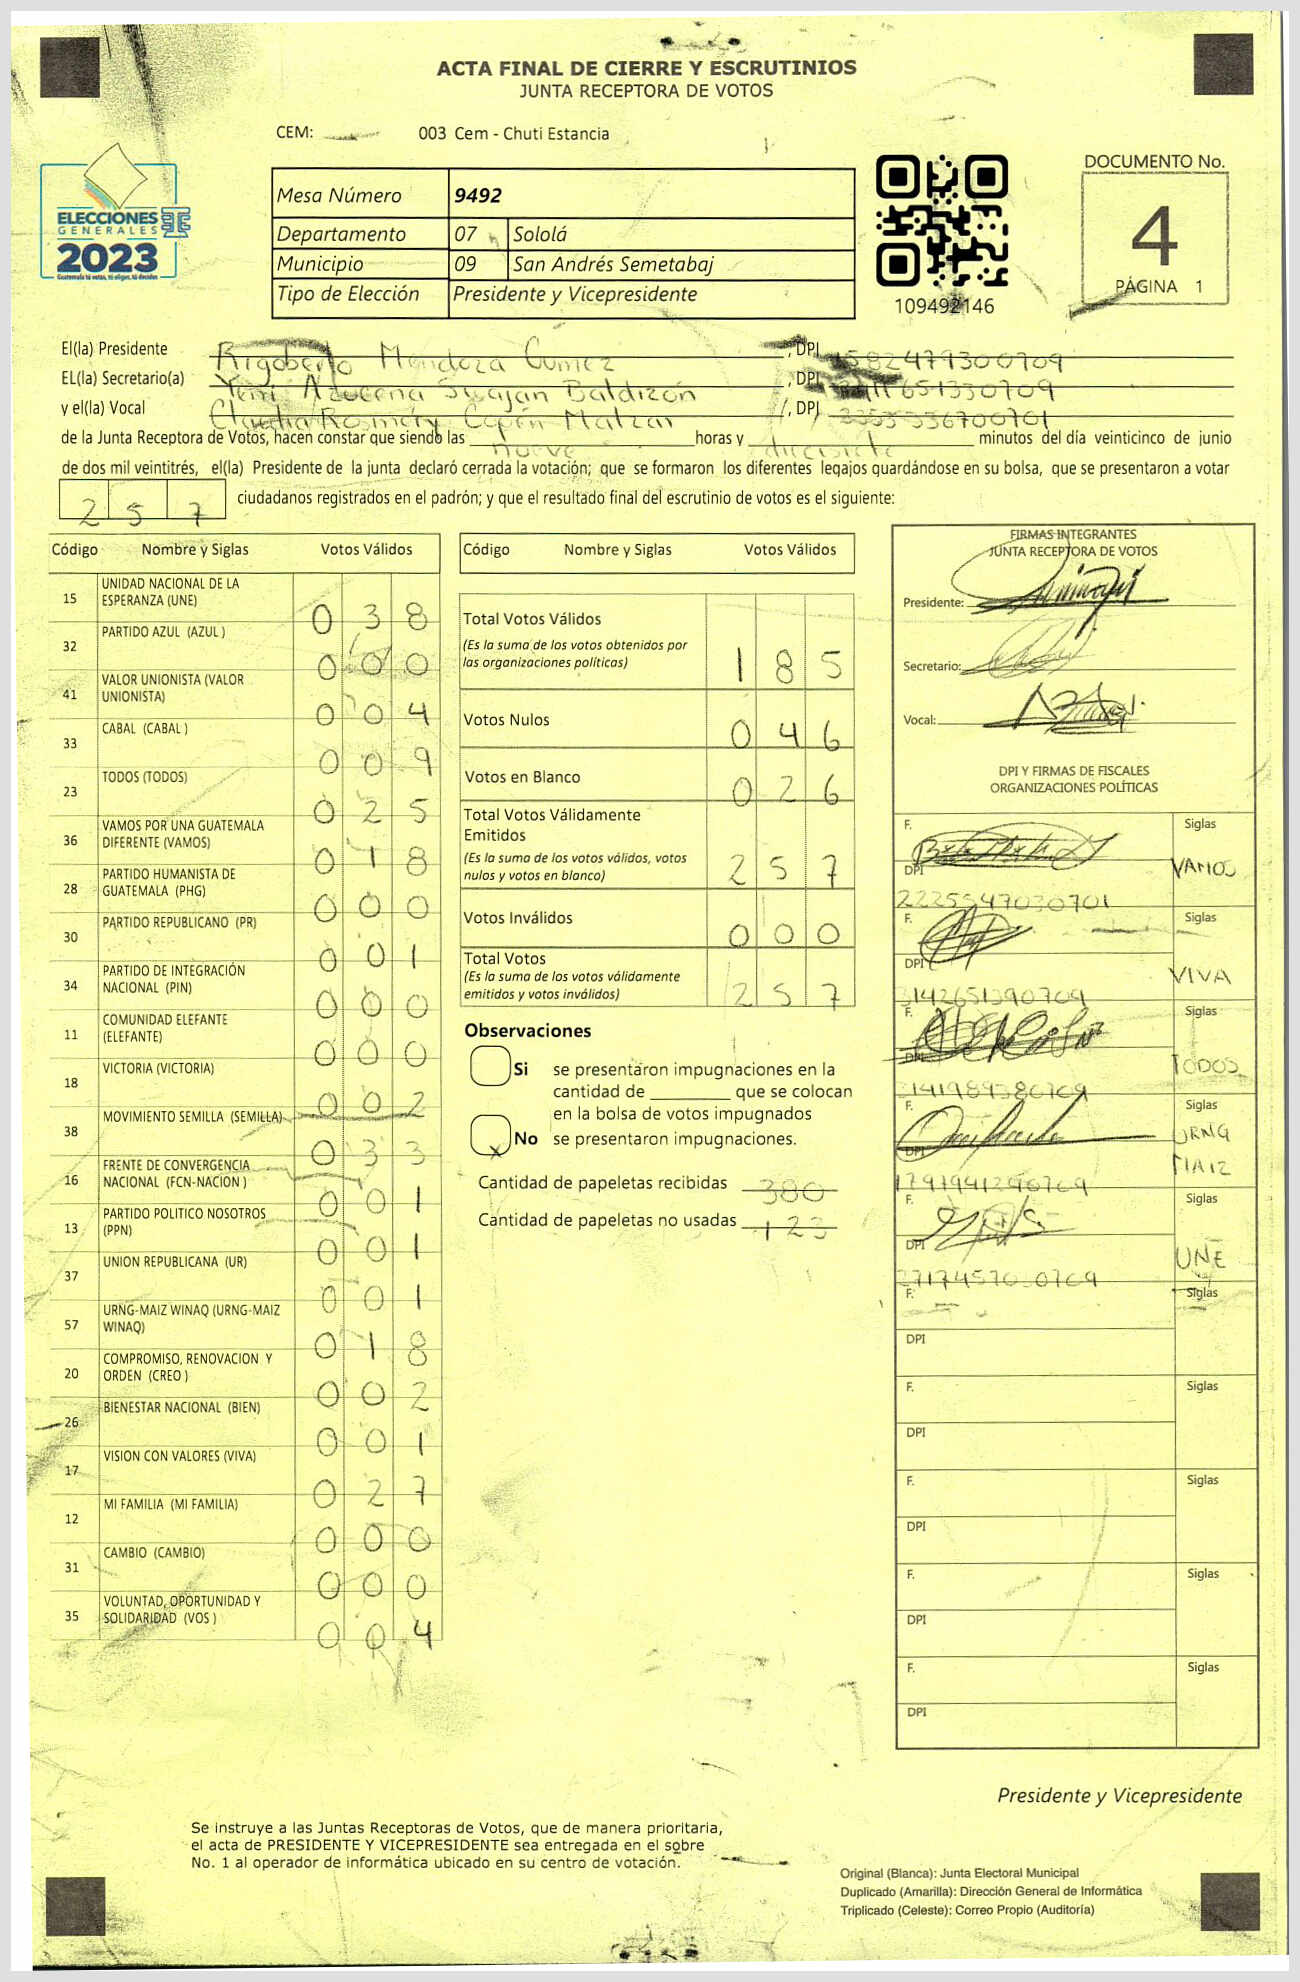 ACTA FINAL DE CIERRE Y ESCRUTINIOS
JUNTA RECEPTORA DE VOTOS
CEM: 003 Cem - Chuti Estancia
ELECCIONES
GENERALES
2023
Guatemala tú votas, tú eliges, tú decides
Mesa Número 9492
Departamento 07 Sololá
Municipio 09 San Andrés Semetabaj
Tipo de Elección Presidente y Vicepresidente
109492146
DOCUMENTO No.
4
PÁGINA 1
El(la) Presidente Rigoberto Mendoza Gumez, DPI
EL(la) Secretario(a) Yeni Azucena Baldizón, DPI
y el(la) Vocal Claudia Rosmery Copén Matzar, DPI
de la Junta Receptora de Votos, hacen constar que siendo las nueve horas y diecisiete minutos del día veinticinco de junio
de dos mil veintitrés, el(la) Presidente de la junta declaró cerrada la votación; que se formaron los diferentes legajos guardándose en su bolsa, que se presentaron a votar
257 ciudadanos registrados en el padrón; y que el resultado final del escrutinio de votos es el siguiente:
Código Nombre y Siglas Votos Válidos
15 UNIDAD NACIONAL DE LA ESPERANZA (UNE) 038
32 PARTIDO AZUL (AZUL ) 000
41 VALOR UNIONISTA (VALOR UNIONISTA) 004
33 CABAL (CABAL ) 009
23 TODOS (TODOS) 025
36 VAMOS POR UNA GUATEMALA DIFERENTE (VAMOS) 018
28 PARTIDO HUMANISTA DE GUATEMALA (PHG) 000
30 PARTIDO REPUBLICANO (PR) 001
34 PARTIDO DE INTEGRACIÓN NACIONAL (PIN) 000
11 COMUNIDAD ELEFANTE (ELEFANTE) 000
18 VICTORIA (VICTORIA) 002
38 MOVIMIENTO SEMILLA (SEMILLA) 033
16 FRENTE DE CONVERGENCIA NACIONAL (FCN-NACION ) 001
13 PARTIDO POLITICO NOSOTROS (PPN) 001
37 UNION REPUBLICANA (UR) 001
57 URNG-MAIZ WINAQ (URNG-MAIZ WINAQ) 018
20 COMPROMISO, RENOVACION Y ORDEN (CREO ) 002
26 BIENESTAR NACIONAL (BIEN) 001
17 VISION CON VALORES (VIVA) 027
12 MI FAMILIA (MI FAMILIA) 000
31 CAMBIO (CAMBIO) 000
35 VOLUNTAD, OPORTUNIDAD Y SOLIDARIDAD (VOS ) 004
Código Nombre y Siglas Votos Válidos
Total Votos Válidos 185
(Es la suma de los votos obtenidos por
las organizaciones políticas)
Votos Nulos 046
Votos en Blanco 026
Total Votos Válidamente
Emitidos 257
(Es la suma de los votos válidos, votos
nulos y votos en blanco)
Votos Inválidos 000
Total Votos 257
(Es la suma de los votos válidamente
emitidos y votos inválidos)
Observaciones
Si se presentaron impugnaciones en la
cantidad de ________ que se colocan
en la bolsa de votos impugnados
x No se presentaron impugnaciones.
Cantidad de papeletas recibidas 380
Cantidad de papeletas no usadas 123
FIRMAS INTEGRANTES
JUNTA RECEPTORA DE VOTOS
Presidente:
Secretario:
Vocal:
DPI Y FIRMAS DE FISCALES
ORGANIZACIONES POLÍTICAS
F. Siglas
DPI VAMOS
2225547030701
F. Siglas
DPI VIVA
3142651390709
F. Siglas
DPI TODOS
3141989380709
F. Siglas
DPI URNG MAIZ
F. Siglas
DPI UNE
F. Siglas
DPI
F. Siglas
DPI
F. Siglas
DPI
F. Siglas
DPI
F. Siglas
DPI
Presidente y Vicepresidente
Se instruye a las Juntas Receptoras de Votos, que de manera prioritaria,
el acta de PRESIDENTE Y VICEPRESIDENTE sea entregada en el sobre
No. 1 al operador de informática ubicado en su centro de votación.
Original (Blanca): Junta Electoral Municipal
Duplicado (Amarilla): Dirección General de Informática
Triplicado (Celeste): Correo Propio (Auditoría)